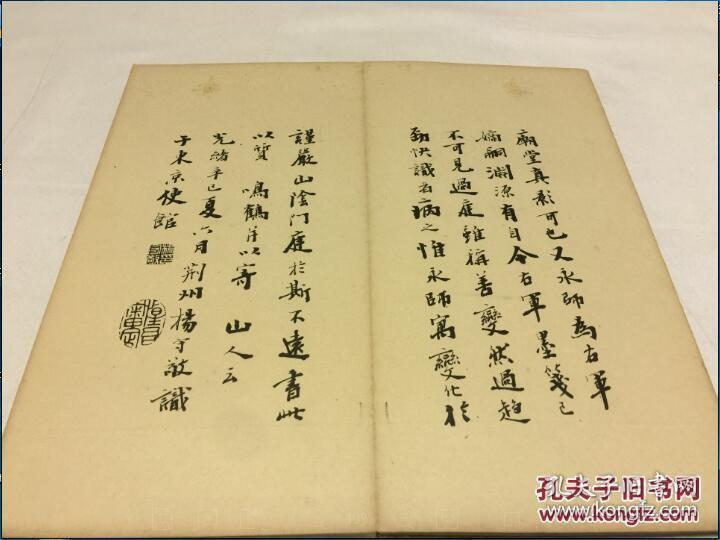 廟堂真影可也又永師為右軍
嫡嗣淵源有自今右軍墨箋已
不可見過庭雖稱善變然過趋
勁快識者病之惟永師寓變化於
謹嚴山陰門庭於斯不遠書此
以質鳴鶴并以寄山人云
光緒辛巳夏六月荆州楊守敬識
于東京使館
孔夫子旧书网
www.kongfz.com